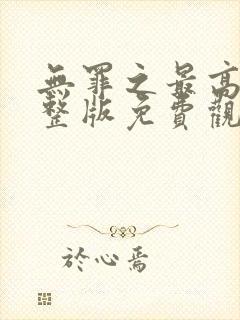 無罪之最高
整版免費觀
於心焉